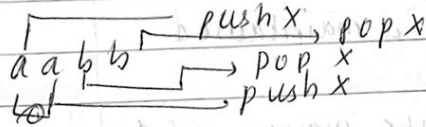 push x
pop x
a a b b
pop x
push x